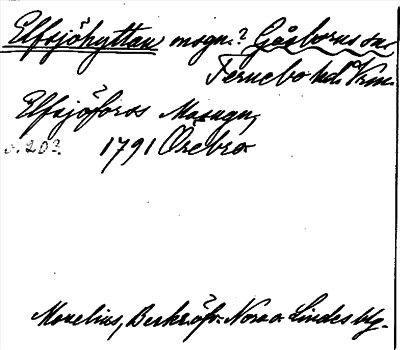 Elfsjöhyttan, mogn.? Gåsborns sn,
Fernebo hd. Vrm.
Elfsjöfors Masugn,
s. 203. 1791 Örebro
Morelius, Berksöfv. Nora o. Lindes blg.